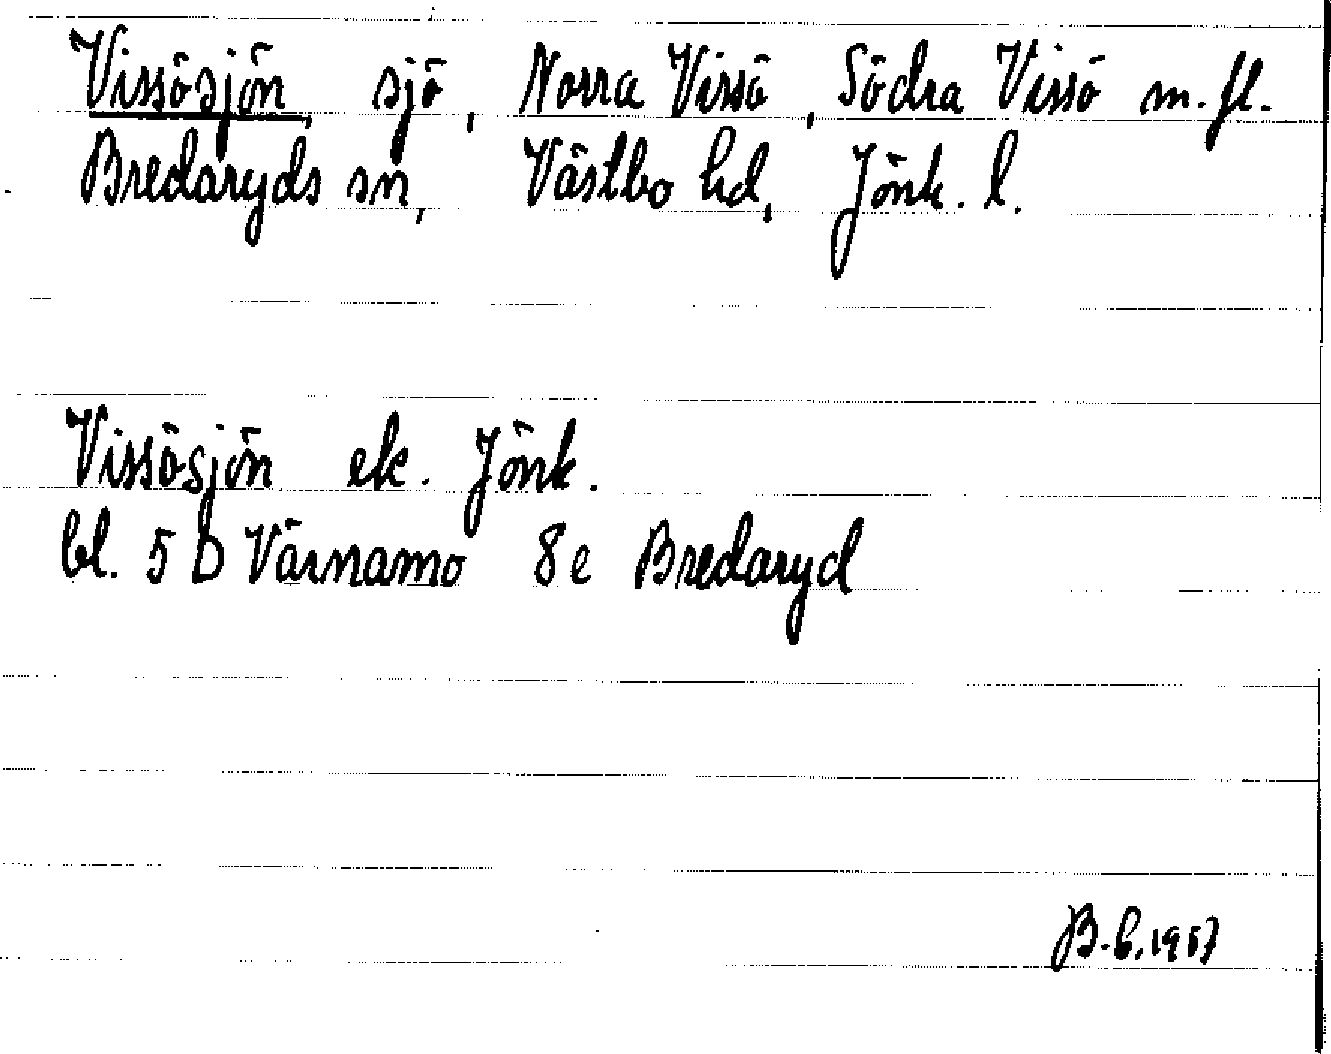 Vissösjön, sjö, Norra Vissö, Södra Vissö m. fl.
Bredaryds sn, Västbo hd, Jönk. l.
Vissösjön ek. Jönk.
bl. 5 D Värnamo 8e Bredaryd
B-b. 1957